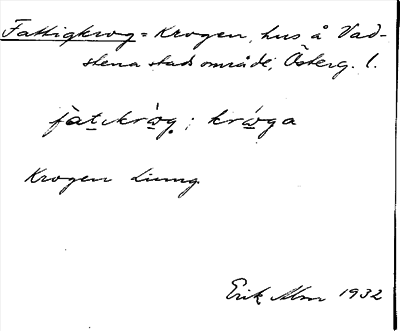 Fattigkrog = Krogen, hus å Vad-
stena stads område, Österg. l.
fàtıkrὼg ; krώga
Krogen Ljung.
Erik Alm 1932